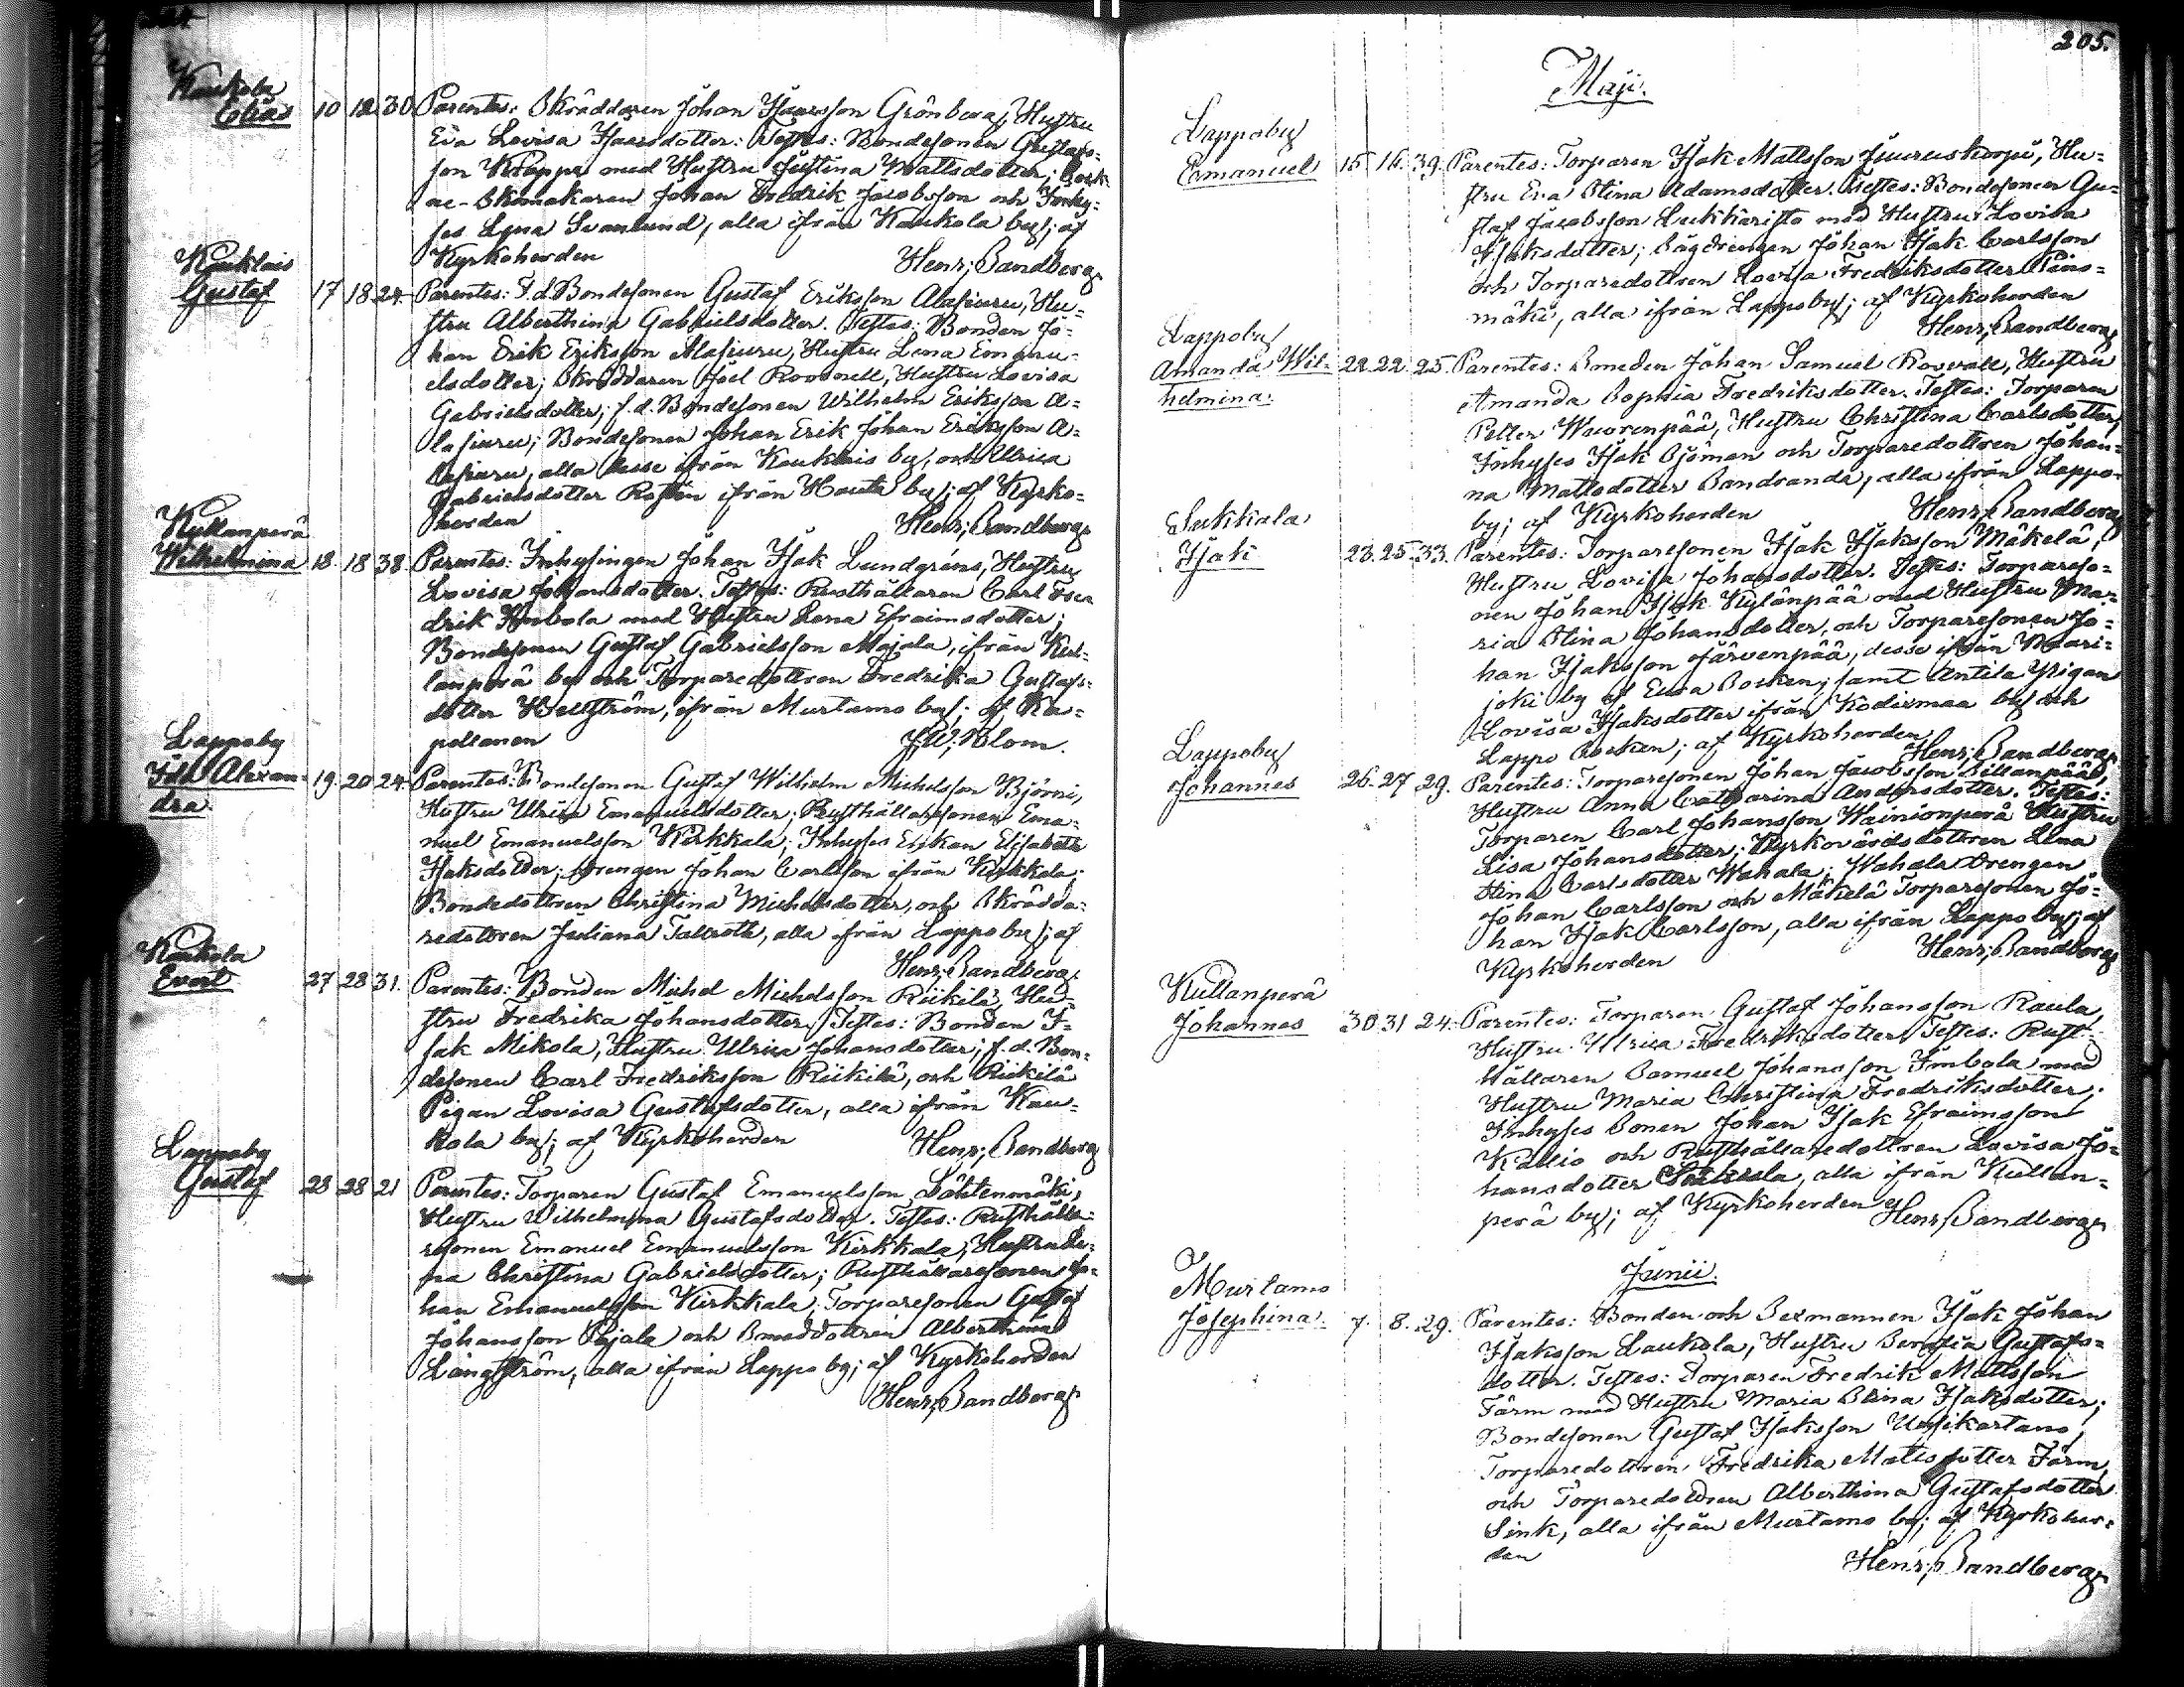 Kaukola
Elias 10 12 30 Parentes: Skräddaren Johan Isacsson Grönberg, Hustru
Eva Lovisa Isacsdotter: Testes: Bondesonen Gustafs-
son Knaapi med Hustru Justina Mattsdotter;
Skomakaren Johan Fredrik Jacobsson och Inhy-
ses Lena Svanlund, alla ifrån Kaukola by; af
Kyrkoherden Henr; Sandberg
Kauklais
Gustaf 17 18 24. Parentes: F.d. Bondesonen Gustaf Eriksson Alasjuru, Hu-
stru Alberthina Gabrielsdotter. Testes: Bonden Jo-
han Erik Eriksson Alasjuru, Hustru Lena Emanu-
elsdotter; Skräddaren Joel Roosnell, Hustru Lovisa
Gabrielsdotter; f.d. Bondesonen Wilhelm Eriksson A-
lasjuru; Bondesonen Johan Erik Johan Eriksson A-
lasjuru, alla desse ifrån Kauklais by, och Ulrica
Gabrielsdotter ifrån Hauta by; af Kyrko-
herden Henr; Sandberg
Kullanperä
Wilhelmina 18. 18 38 Parentes: Inhysingen Johan Isak Lundgréns, Hustru
Lovisa Johansdotter. Testes: Rusthållaren Carl Fre-
drik Imbola med Hustru Lena Efraimsdotter;
Bondesonen Gustaf Gabrielsson Majala, ifrån Kul-
lanperä by och Torparedottren Fredrika Gustafs-
dotter Hellström, ifrån Murtamo by; af Ka-
pellanen J.W; Blom.
Lappoby
Ida Alexan- 19. 20 24. Parentes: Bondesonen Gustaf Wilhelm Michelsson Björni,
dra. Hustru Ulrica Emanuelsdotter; Rusthållaresonen Ema-
nuel Emanuelsson Kirkkala; Inhyses Enkan Elisabeth
Isaksdotter; Drengen Johan Carlsson ifrån Kirkkala;
Bondedottren Christina Michelsdotter, och Skrädda-
redottren Juliana Tallroth, alla ifrån Lappo by; af
Henr; Sandberg.
Kaukola
Evert 27 28 31. Parentes: Bonden Michel Michelsson Riikilä, Hu-
stru Fredrika Johansdotter. Testes: Bonden I-
sak Mikola, Hustru Ulrica Johansdotter; f.d. Bon-
desonen Carl Fredriksson Riikilä, och Riikilä
Pigan Lovisa Gustafsdotter, alla ifrån Kau-
kola by; af Kyrkoherden Henr; Sandberg
Lappoby
Gustaf 28 28 21 Parentes: Torparen Gustaf Emanuelsson Lähtenmäki,
Hustru Wilhelmina Gustafsdotter. Testes: Rusthålla-
resonen Emanuel Emanuelsson Kirkkala, Hustru Le-
na Christina Gabrielsdotter; Rusthållaresonen Jo-
han Emanuelsson Kirkkala, Torparesonen Gustaf
Johansson Pajala och Smeddottren Alberthina
Långström, alla ifrån Lappo by; af Kyrkoherden
Henr; Sandberg
205.
Maji.
Lappoby
Emanuel 15 16. 39. Parentes: Torparen Isak Mattsson Juureskorpi, Hu-
stru Eva Stina Adamsdotter. Testes: Bondesonen Gu-
staf Jacobsson Lukkaristo med Hustru Lovisa
Isaksdotter; Sågdrengen Johan Isak Carlsson
och Torparedottren Lovisa Fredriksdotter
mäki, alla ifrån Lappo by; af Kyrkoherden
Henr; Sandberg
Lappoby
Amanda Wil- 22. 22. 25. Parentes: Smeden Johan Samuel Roswall, Hustru
helmina. Amanda Sophia Fredriksdotter. Testes: Torparen
Petter Wuorenpää, Hustru Christina Carlsdotter,
Inhyses Isak Sjöman och Torparedottren Johan-
na Mattsdotter Sandranda, alla ifrån Lappo-
by; af Kyrkoherden Henr; Sandberg
Sukkala
Isak 23. 25. 33. Parentes: Torparesonen Isak Isaksson Mäkelä,
Hustru Lovisa Johansdotter. Testes: Torpareso-
nen Johan Isak Kylänpää med Hustru Ma-
ria Stina Johansdotter, och Torparesonen Jo-
han Isaksson Järvenpää, desse ifrån Naari-
joki by af Eura Socken; samt Antila Pigan
Lovisa Isaksdotter ifrån Kodixmaa by och
Lappo Socken; af Kyrkoherden
Henr; Sandberg
Lappoby
Johannes 26. 27 29. Parentes: Torparesonen Johan Jacobsson Sillanpää,
Hustru Anna Catharina Andersdotter. Testes:
Torparen Carl Johansson Wainionperä Hustru
Lisa Johansdotter; Kyrkovärdsdottren Lena
Stina Carlsdotter Wahala; Wahala Drengen
Johan Carlsson och Mäkelä Torparesonen Jo-
han Isak Carlsson, alla ifrån Lappo by; af
Kyrkoherden Henr; Sandberg
Kullanperä
Johannes 30 31 24. Parentes: Torparen Gustaf Johansson Raula,
Hustru Ulrica Fredriksdotter. Testes: Rust-
hållaren Samuel Johansson Imbola med
Hustru Maria Christina Fredriksdotter;
Inhyses Sonen Johan Isak Efraimsson
Kallio och Rusthållaredottren Lovisa Jo-
hansdotter alla ifrån Kullan-
perä by; af Kyrkoherden
Henr; Sandberg
Junii.
Murtamo
Josephina. 7. 8. 29. Parentes: Bonden och Sexmannen Isak Johan
Isaksson Laukola, Hustru Gustafs-
dotter. Testes: Torparen Fredrik Mattsson
Färm med Hustru Maria Stina Isaksdotter;
Bondesonen Gustaf Isaksson Uusikartano,
Torparedottren Fredrika Mattsdotter Färm,
och Torparedottren Alberthina Gustafsdotter
Sink, alla ifrån Murtamo by; af Kyrkoher-
den Henr; Sandberg